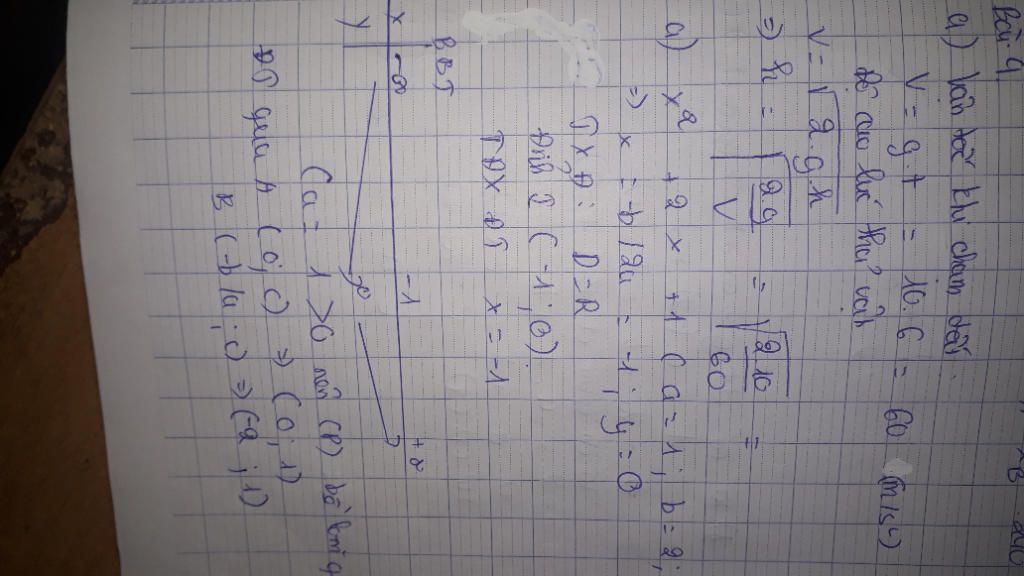 Bài 4
a) Vận tốc khi chạm đất.
V = g.t = 10.6 = 60 (m/s)
độ cao lúc thả vật
V = √2.g.h
=> h = √2.g/V = √2.10/60 =
a) x² + 2x + 1 (a = 1; b = 2;
=> x = -b/2a = -1; y = 0
TXĐ: D = R
Đỉnh I (-1; 0)
TĐX ĐT x = -1
BBT
x -∞ -1 +∞
y 0
(a = 1 > 0 nên (P) bề lõm q
ĐT qua A (0; c) => (0; 1)
B (-b/a; c) => (-2; 1)